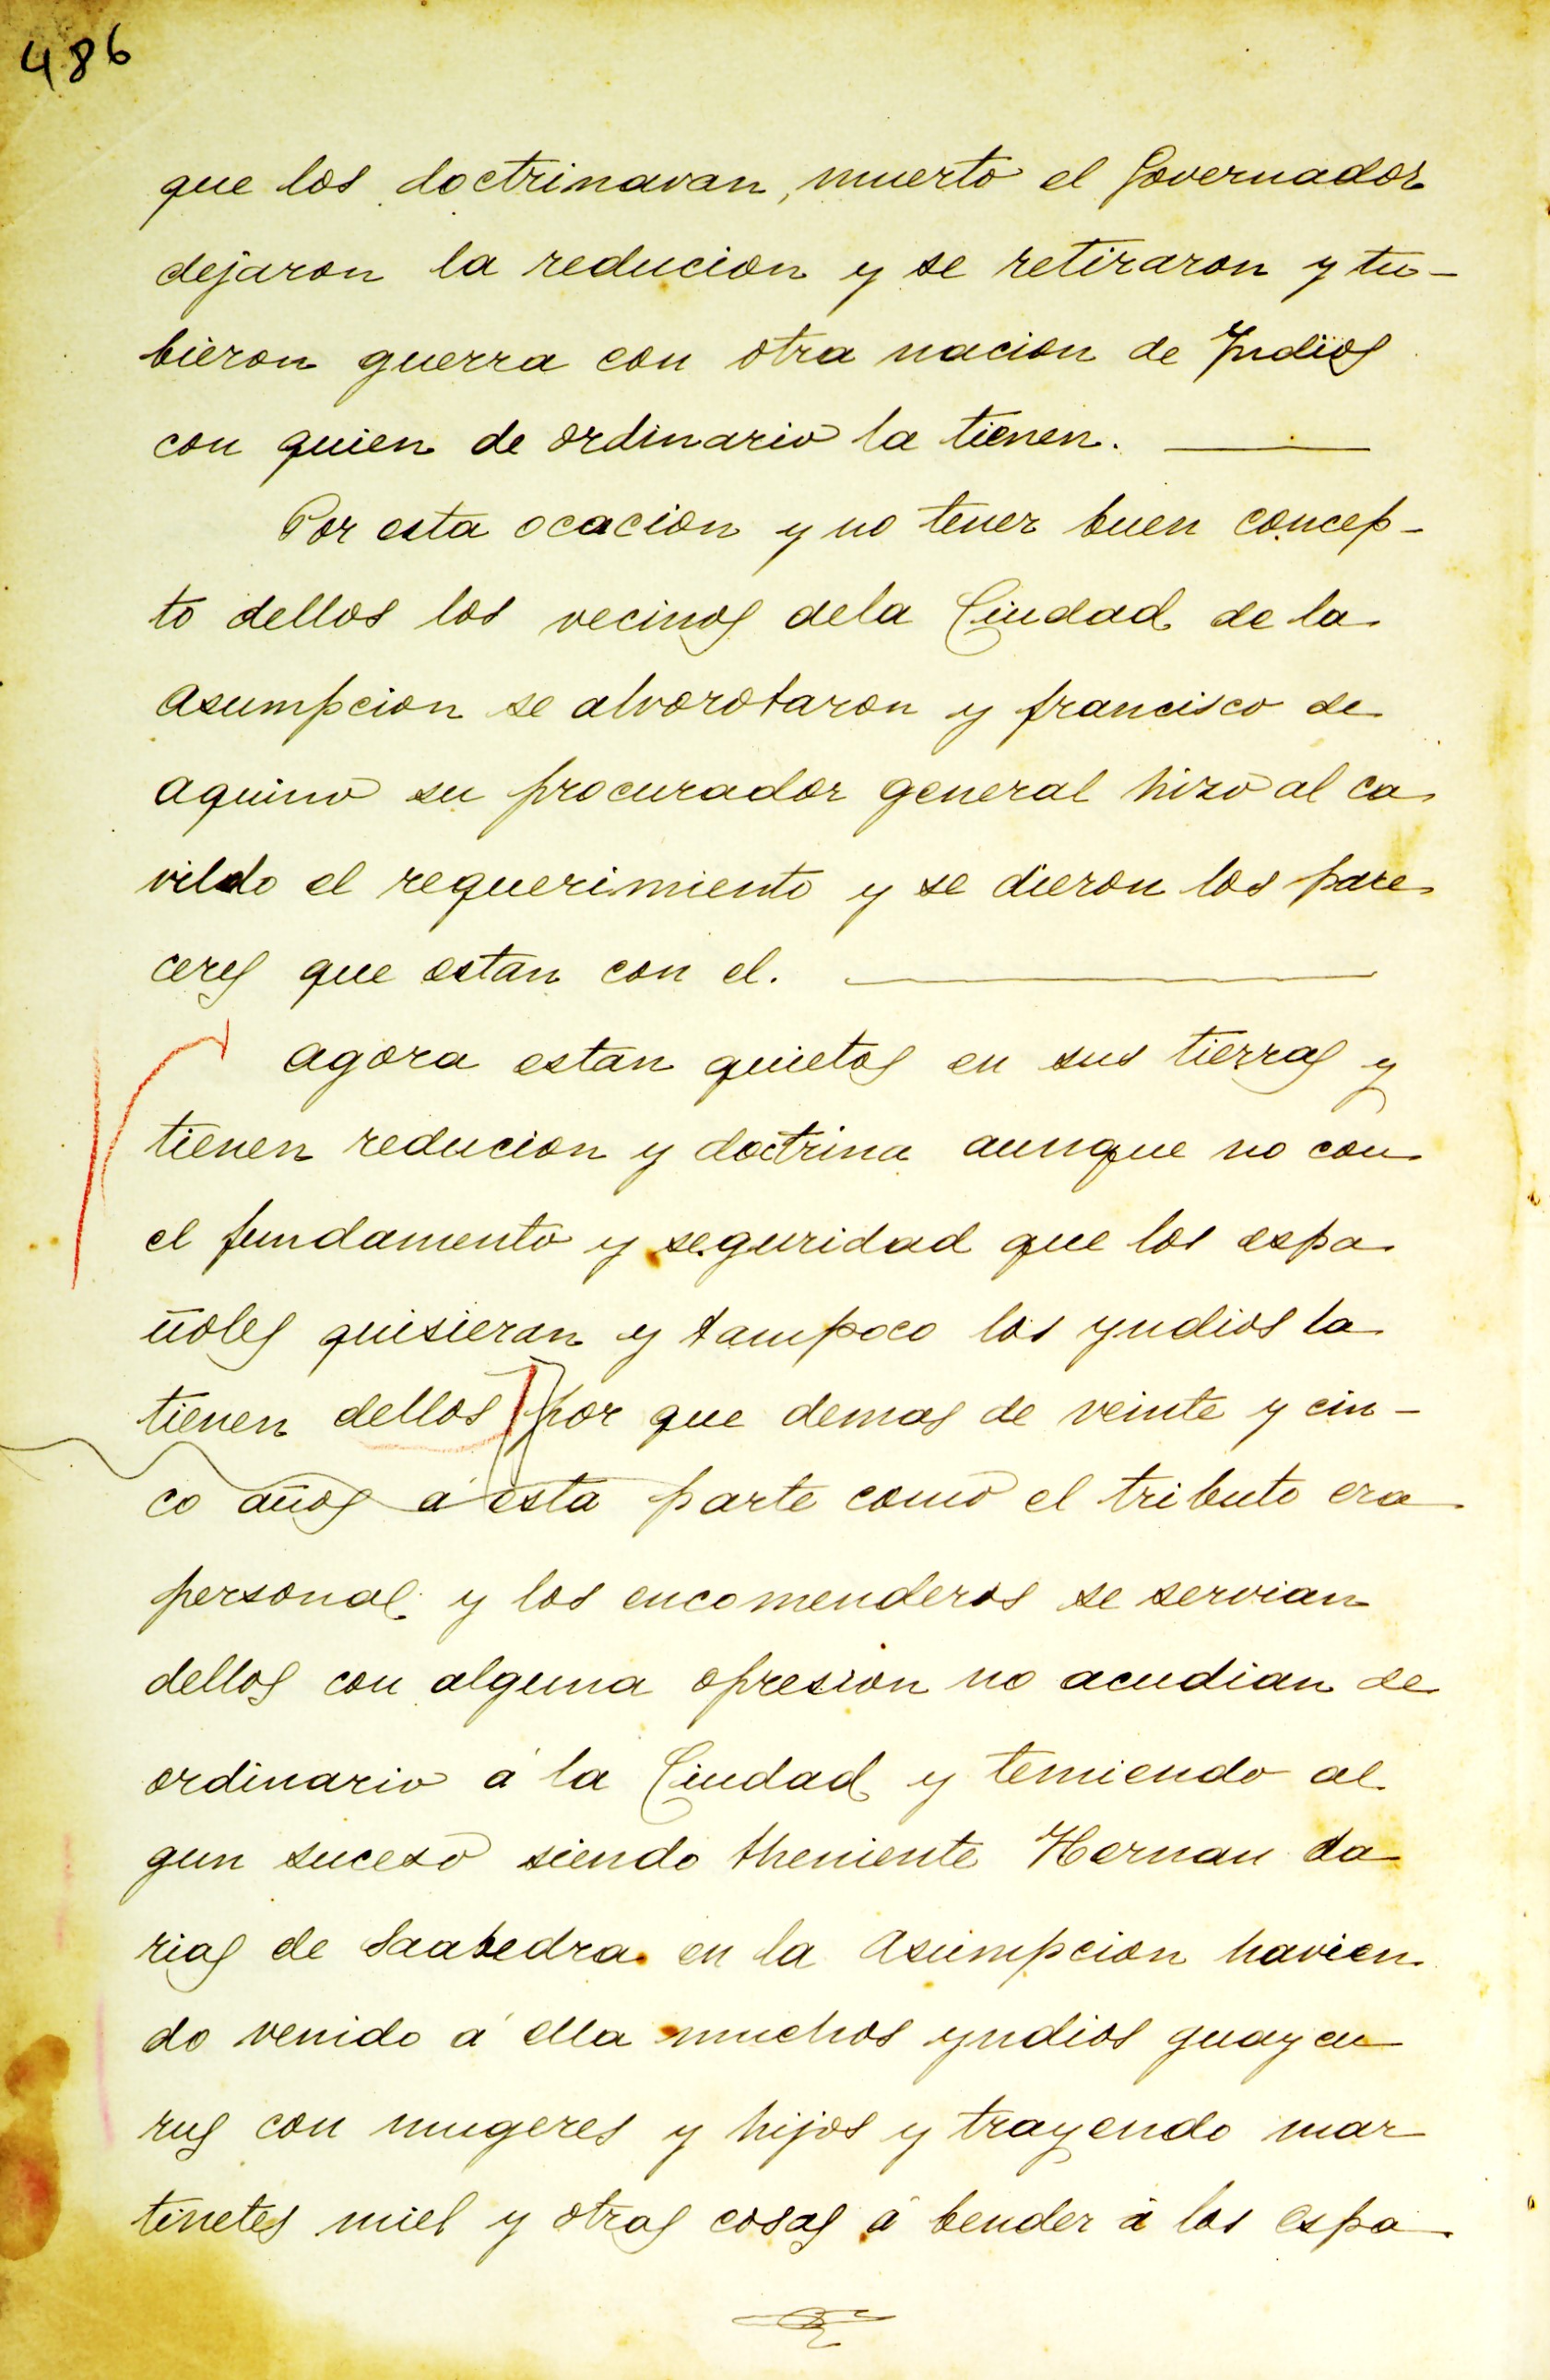 486
que los doctrinavan, muerto el Governador
dejaron la reducion y se retiraron y tu-
bieron guerra con otra nacion de Yndios
con quien de ordinario la tienen.
Por esta ocacion y no tener buen concep-
to dellos los vecinos dela Ciudad de la
asumpcion se alvorotaron y francisco de
aquino su procurador general hizo al ca
vildo el requerimiento y se dieron los pare
ceres que estan con el.
agora estan quietos en sus tierras y
tienen reducion y doctrina aunque no con
el fundamento y seguridad que los espa
ñoles quisieran y tampoco los yndios la
tienen dellos por que demas de veinte y cin-
co años á esta parte como el tributo era
personal y los encomenderos se servian
dellos con alguna opresion no acudian de
ordinario á la Ciudad y temiendo al
gun suceso siendo theniente Hernan da
rias de Saabedra en la asumpcion havien
do venido á ella muchos yndios guaycu
rus con mugeres y hijos y trayendo mar
tinetes miel y otras cosas á bender á los espa